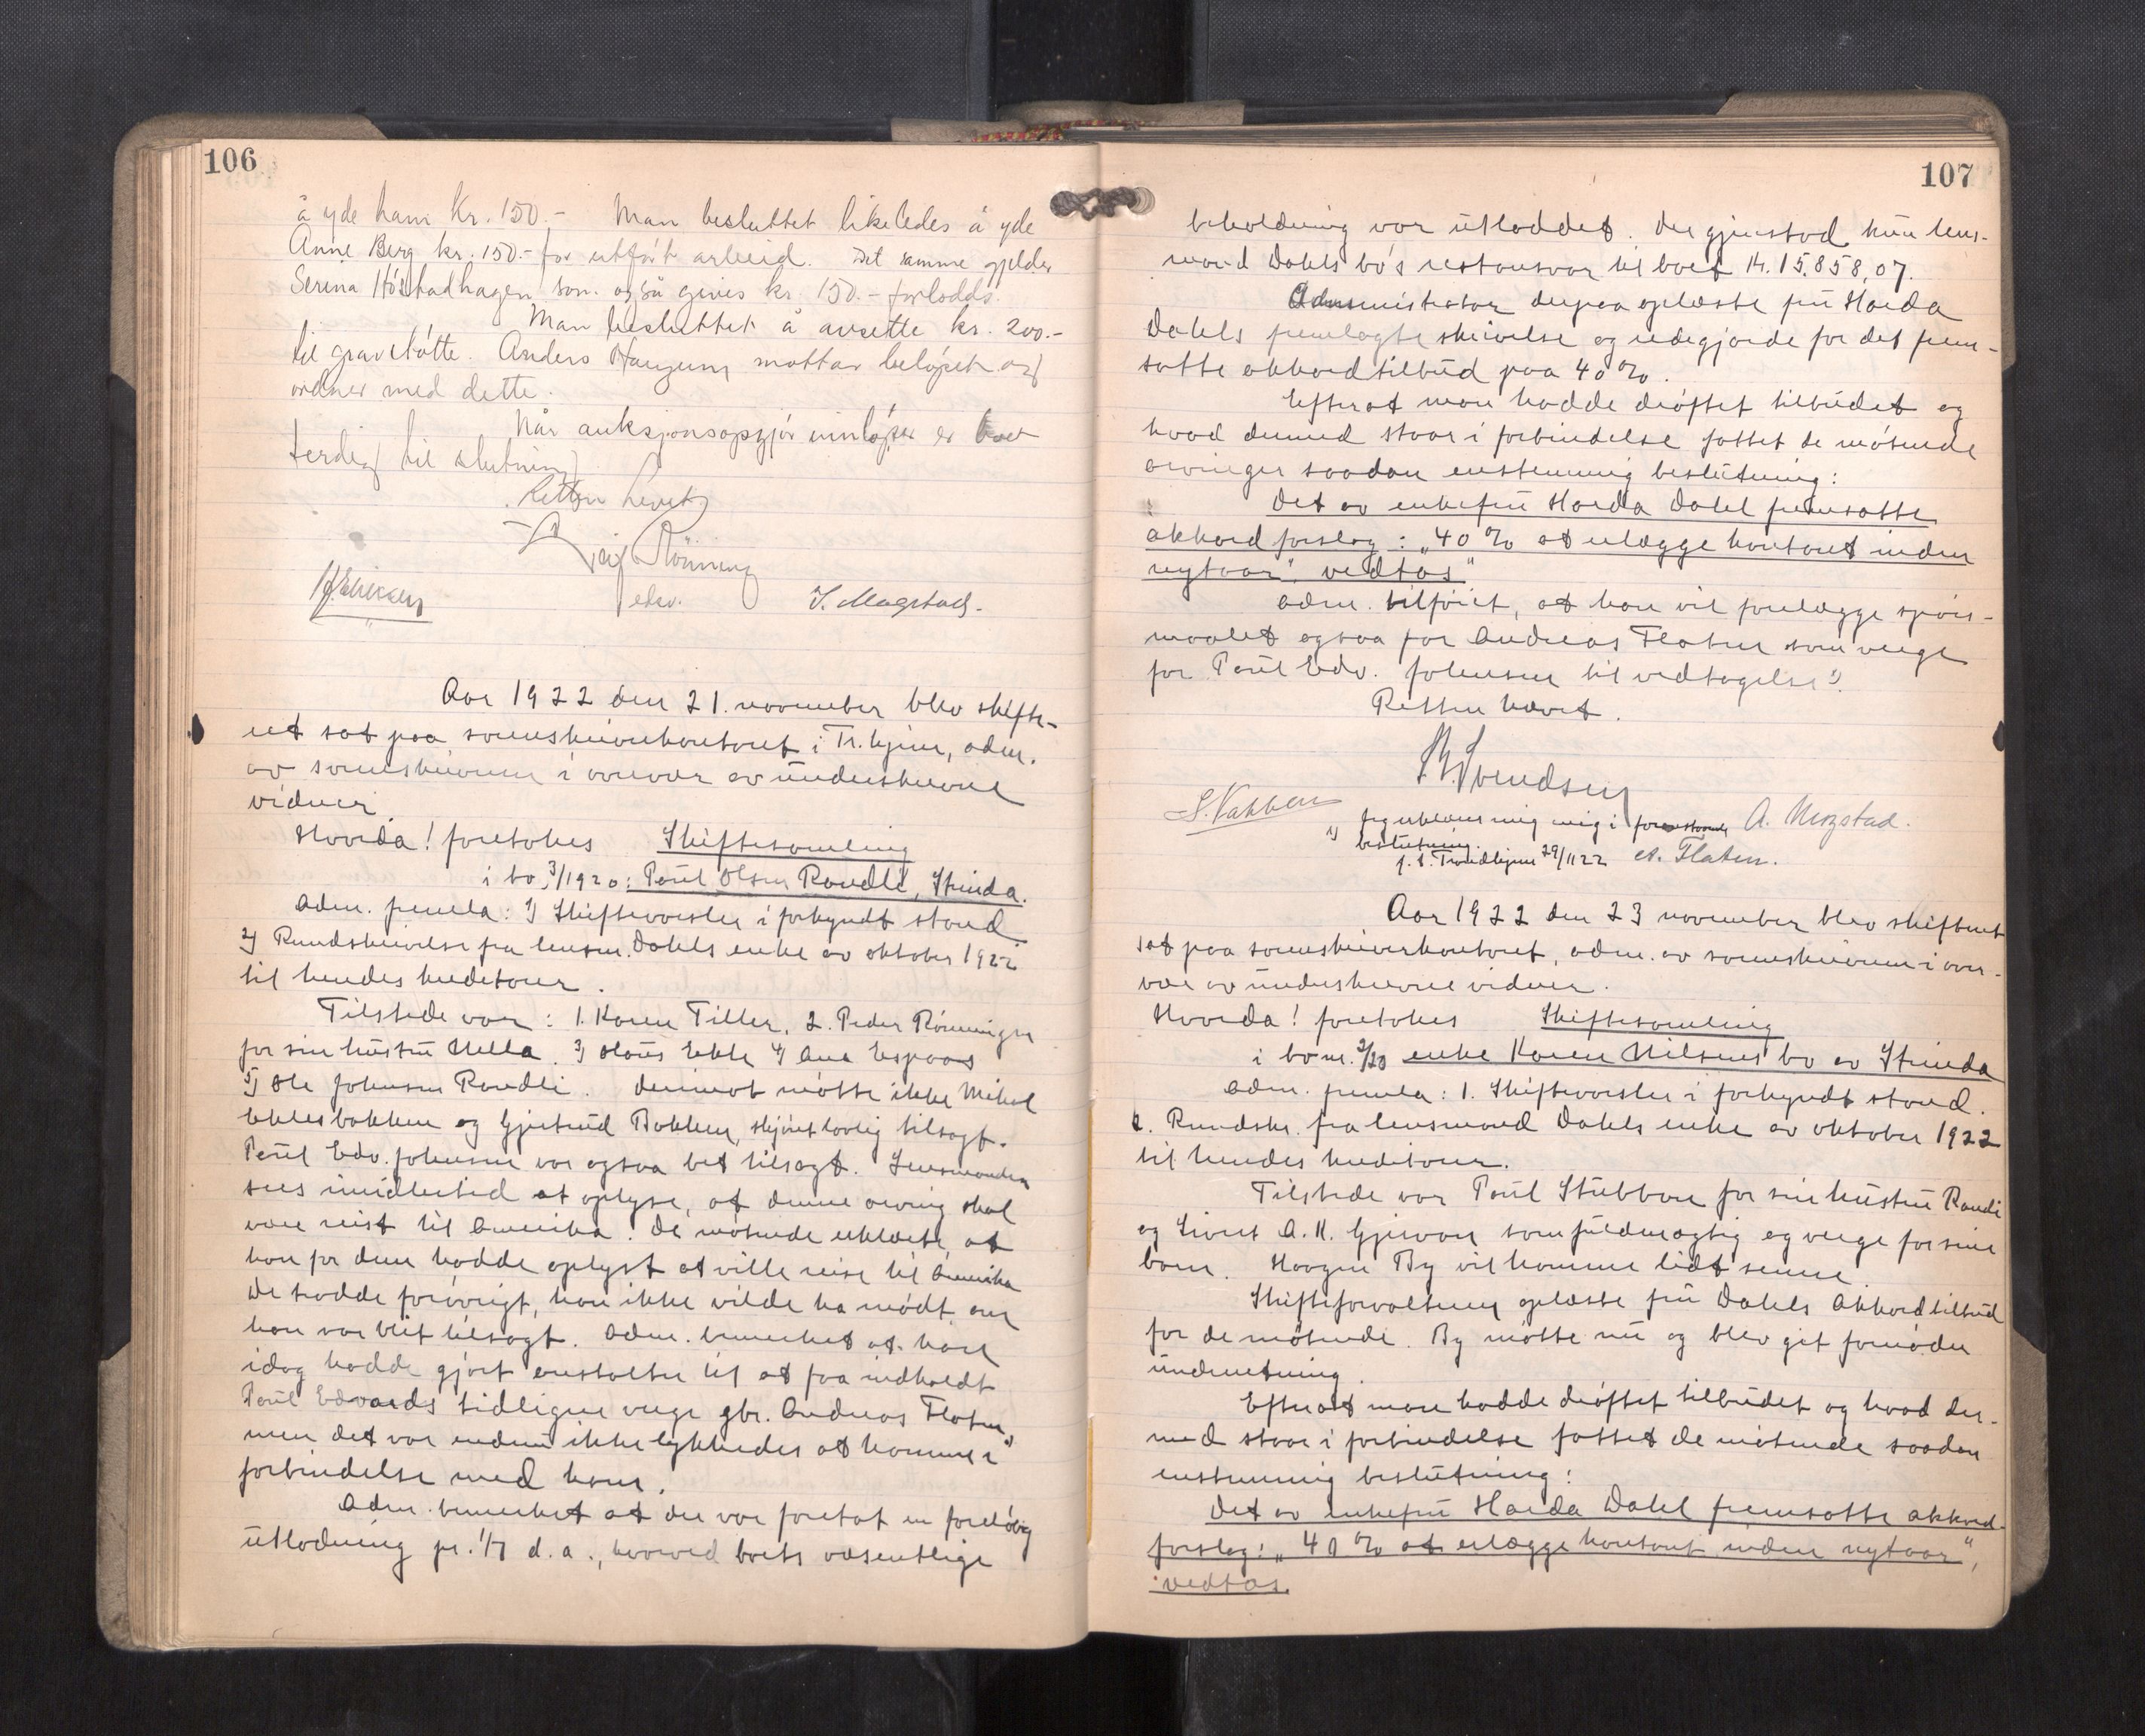 106
å yde ham Kr. 150.- Man besluttet likeledes å yde
Anne Berg kr. 150.- for utført arbeid. Det samme gjelder
Serina Høstadhagen som også gives kr. 150.- forlodds.
Man besluttet å avsette kr. 200.-
til gravstøtte. Anders Haugum mottar beløpet og
ordner med dette.
Når auksjonsopgjør innløper er boet
ferdig til slutning
Retten hevet
Leif Rönning
edsv.
J. Magstad.
Aar 1922 den 21. november blev skifte-
ret sat paa sorenskriverkontoret i Tr.hjem, adm.
av sorenskriveren i overvær av underskrevne
vidner.
Hvorda! foretokes Skiftesamling
i bo 3/1920: Paul Olsen Randli, Strinda.
Adm. fremla: 1) Skiftevarsler i forkyndt stand
2) Rundskrivelse fra lensm. Dahls enke av oktober 1922
til hendes kreditorer.
Tilstede var: 1. Karen Tiller, 2. Peder Rønningen
for sin hustru Nella. 3) Olaus Ekle 4) Ane Espaas
5) Ole Johnsen Randli. Derimot møtte ikke Mikal
Eklesbakken og Gjertrud Bakken, skjønt lovlig tilsagt.
Paul Edv. Johnsen var ogsaa bet tilsagt. Lensmanden
sees imidlertid at oplyse, at denne arving skal
være reist til Amerika. De møtende erklærte, at
han for dem hadde oplyst at ville reise til Amerika
De trodde forøvrigt, han ikke vilde ha mødt om
han var blit tilsagt. Adm. bemerket at han
idag hadde gjort anstalter til at faa indkaldt
Paul Edvards tidligere verge gbr. Andreas Flaten,
men det var endnu ikke lykkedes at komme i
forbindelse med ham.
Adm. bemerket at der var foretat en foreløbig
utlodning pr. 1/7 d.a., hvorved boets væsentlige
107
beholdning var utloddet. Der gjenstod kun lens-
mand Dahls bo's restansvar til boet kr. 15.858,07.
Administrator derpaa oplæste fru Harda
Dahls fremlagte skrivelse og redegjorde for det frem-
satte akkordtilbud paa 40%.
Efterat man hadde drøftet tilbudet og
hvad dermed staar i forbindelse fattet de møtende
arvinger saadan enstemmig beslutning:
Det av enkefru Harda Dahl fremsatte
akkordforslag: „40% at erlægge kontant inden
nytaar", vedtas"
Adm. tilføiet, at han vil forelægge spørs-
maalet ogsaa for Andreas Flaten som verge
for Paul Edv. Johnsen til vedtagelse 1).
Retten hævet.
Svendsen
A. Megstad.
1) Jeg erklærer mig enig i foranstaaende
beslutning.
p.t. Trondhjem 29/11 22 A. Flaten.
Aar 1922 den 23 november blev skifteret
sat paa sorenskriverkontoret, adm. av sorenskriveren i over-
vær av underskrevne vidner.
Hvorda! foretokes Skiftesamling
i bo nr. 2/20 enke Karen Nilsens bo av Strinda
Adm. fremla: 1. Skiftevarsler i forkyndt stand.
2. Rundskr. fra lensmand Dahls enke av oktober 1922
til hendes kreditorer.
Tilstede var Paul Stubban for sin hustru Randi
og Sivert A. N. Gjervan som fuldmægtig og verge for sine
barn. Haagen By vil komme lidt senere.
Skifteforvalteren oplæste fru Dahls Akkordtilbud
for de møtende. By møtte nu og blev git fornøden
underretning.
Efterat man hadde drøftet tilbudet og hvad der-
med staar i forbindelse fattet de møtende saadan
enstemmig beslutning:
Det av enkefru Harda Dahl fremsatte akkord-
forslag: „40% at erlægge kontant inden nytaar",
vedtas.